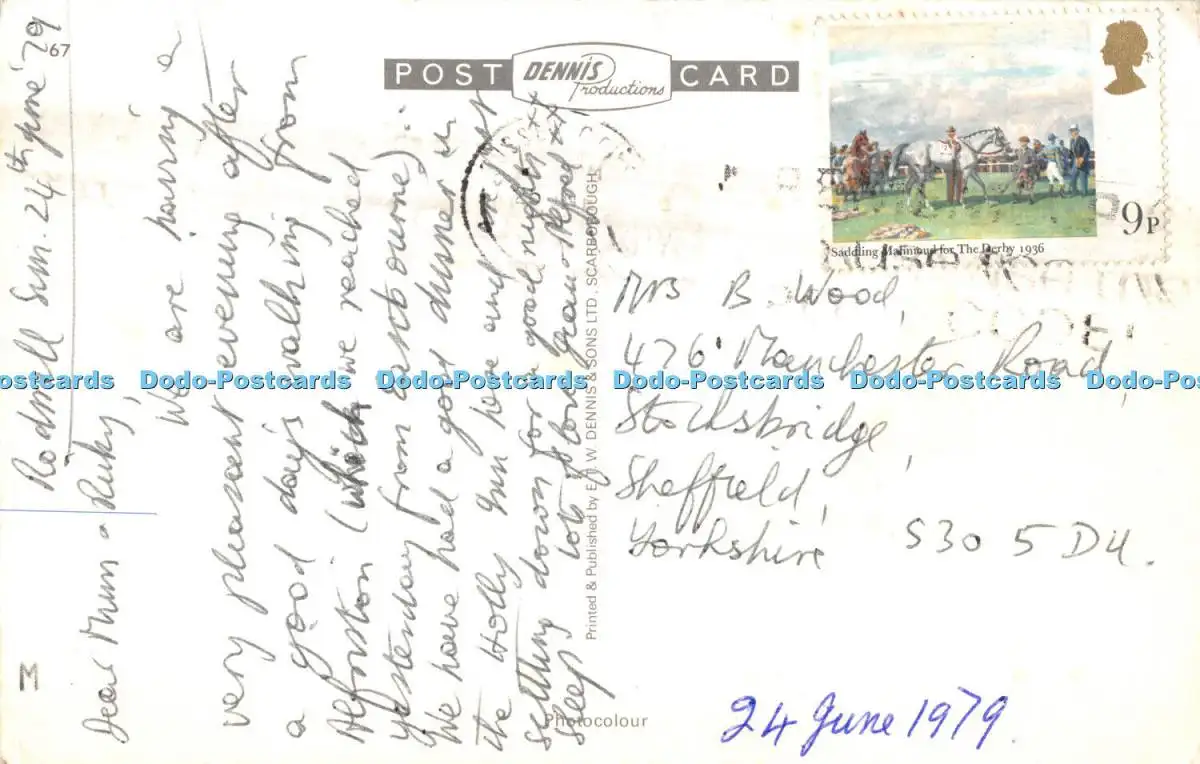 Rodmell Sun. 24th June '79
67
Dear Mum & Ruby,
We are having a
very pleasant evening after
a good day's walking from
Alfriston (which we reached
yesterday from Eastbourne).
We have had a good dinner in
the Holly Inn here and are just
settling down for a good night's
sleep. Lots of love from
POST CARD
DENNIS
Productions
Saddling Mahmoud for The Derby 1936
9P
Mrs B. Wood,
476 Manchester Road,
Stocksbridge,
Sheffield,
Yorkshire S30 5DU.
Printed & Published by E.T.W. DENNIS & SONS LTD., SCARBOROUGH.
Photocolour
M
24 June 1979.
Dodo-Postcards Dodo-Postcards Dodo-Postcards Dodo-Postcards Dodo-Postcards Dodo-Postcards